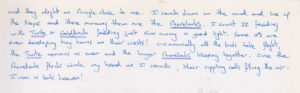 and they alight on shingle close to me. I crouch down on the mud and look up
the slope and there running down are the Shorelarks. I count 28 feeding
with Twite & Goldfinch feeding just 10m away in great light. Some ♂s are
even developing tiny horns on their crests! Occasionally all the birds take flight,
the Twite nervous as ever and the larger Shorelarks keeping together. Once the
Shorelark flock circle my head as I crouch, their rippling calls filling the air.
I was in lark heaven!